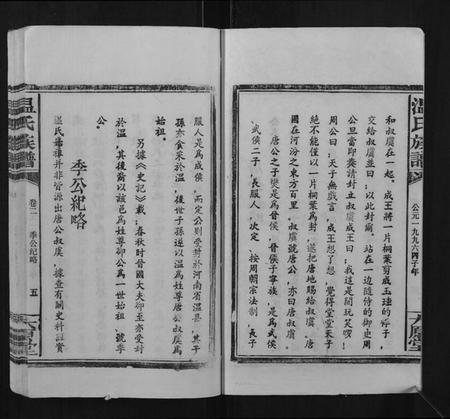 温氏族譜
公元一九九六丙子年
六屬堂
和叔虞在一起。成王將一片桐葉剪成玉珪的樣子，
交給叔虞並曰：以此封爾。站在一邊隨侍的御史周
公旦當即奏請封立叔虞。成王曰：我這是開玩笑哪！
周公曰：天子無戲言，成王想了想，覺得堂堂天子，
絕不能僅以一片桐葉為封，遂把唐地賜給叔虞、唐
國在河汾之東方百里，叔虞號唐公，亦曰唐叔虞。
唐公之子燮是為晉侯，晉侯子寧族，是為武侯
、武侯二子，長服人，次定、按周朝宗法制，長子
服人是為成侯，而定公則受封於河南省溫县，其子
孫亦食采於溫，後世子孫遂以溫為姓尊唐公叔虞為
始祖。
另據《史記》載：春秋時晉國大夫郤至亦受封
於溫，其後裔以該邑為姓尊郤公為一世始祖，號季
公。
季公紀略
溫氏始祖並非皆源出唐公叔虞，據查有關史料證實
温氏族譜
卷二
季公紀略
五
六屬堂